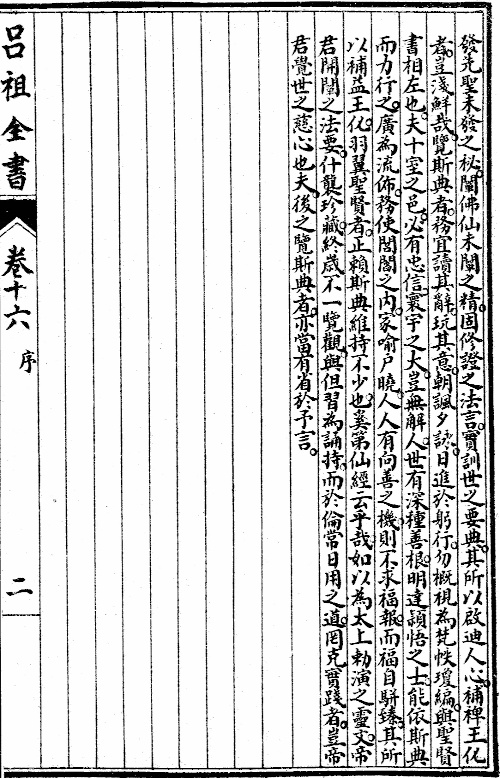 發先聖未發之秘。闡佛仙未闡之精。固修證之法言。實訓世之要典。其所以啟迪人心。補裨王化
者。豈淺鮮哉。覽斯典者。務宜讀其辭。玩其意。朝諷夕詠。日進於躬行。勿概視為梵帙瓊編。與聖賢
書相左也。夫十室之邑。必有忠信。寰宇之大。豈無解人。世有深種善根。明達穎悟之士。能依斯典
而力行之。廣為流佈。務使閭閻之內。家喻戶曉。人人有向善之機。則不求福報。而福自駢臻。其所
以補益王化。羽翼聖賢者。正賴斯典維持不少也。奚第仙經云乎哉。如以為太上勅演之靈文。帝
君開闡之法要。什襲珍藏。終歲不一覽觀。與但習為誦持。而於倫常日用之道。罔克實踐者。豈帝
君覺世之慈心也夫。後之覽斯典者。亦當有省於予言。
呂祖全書
卷十六
序
二